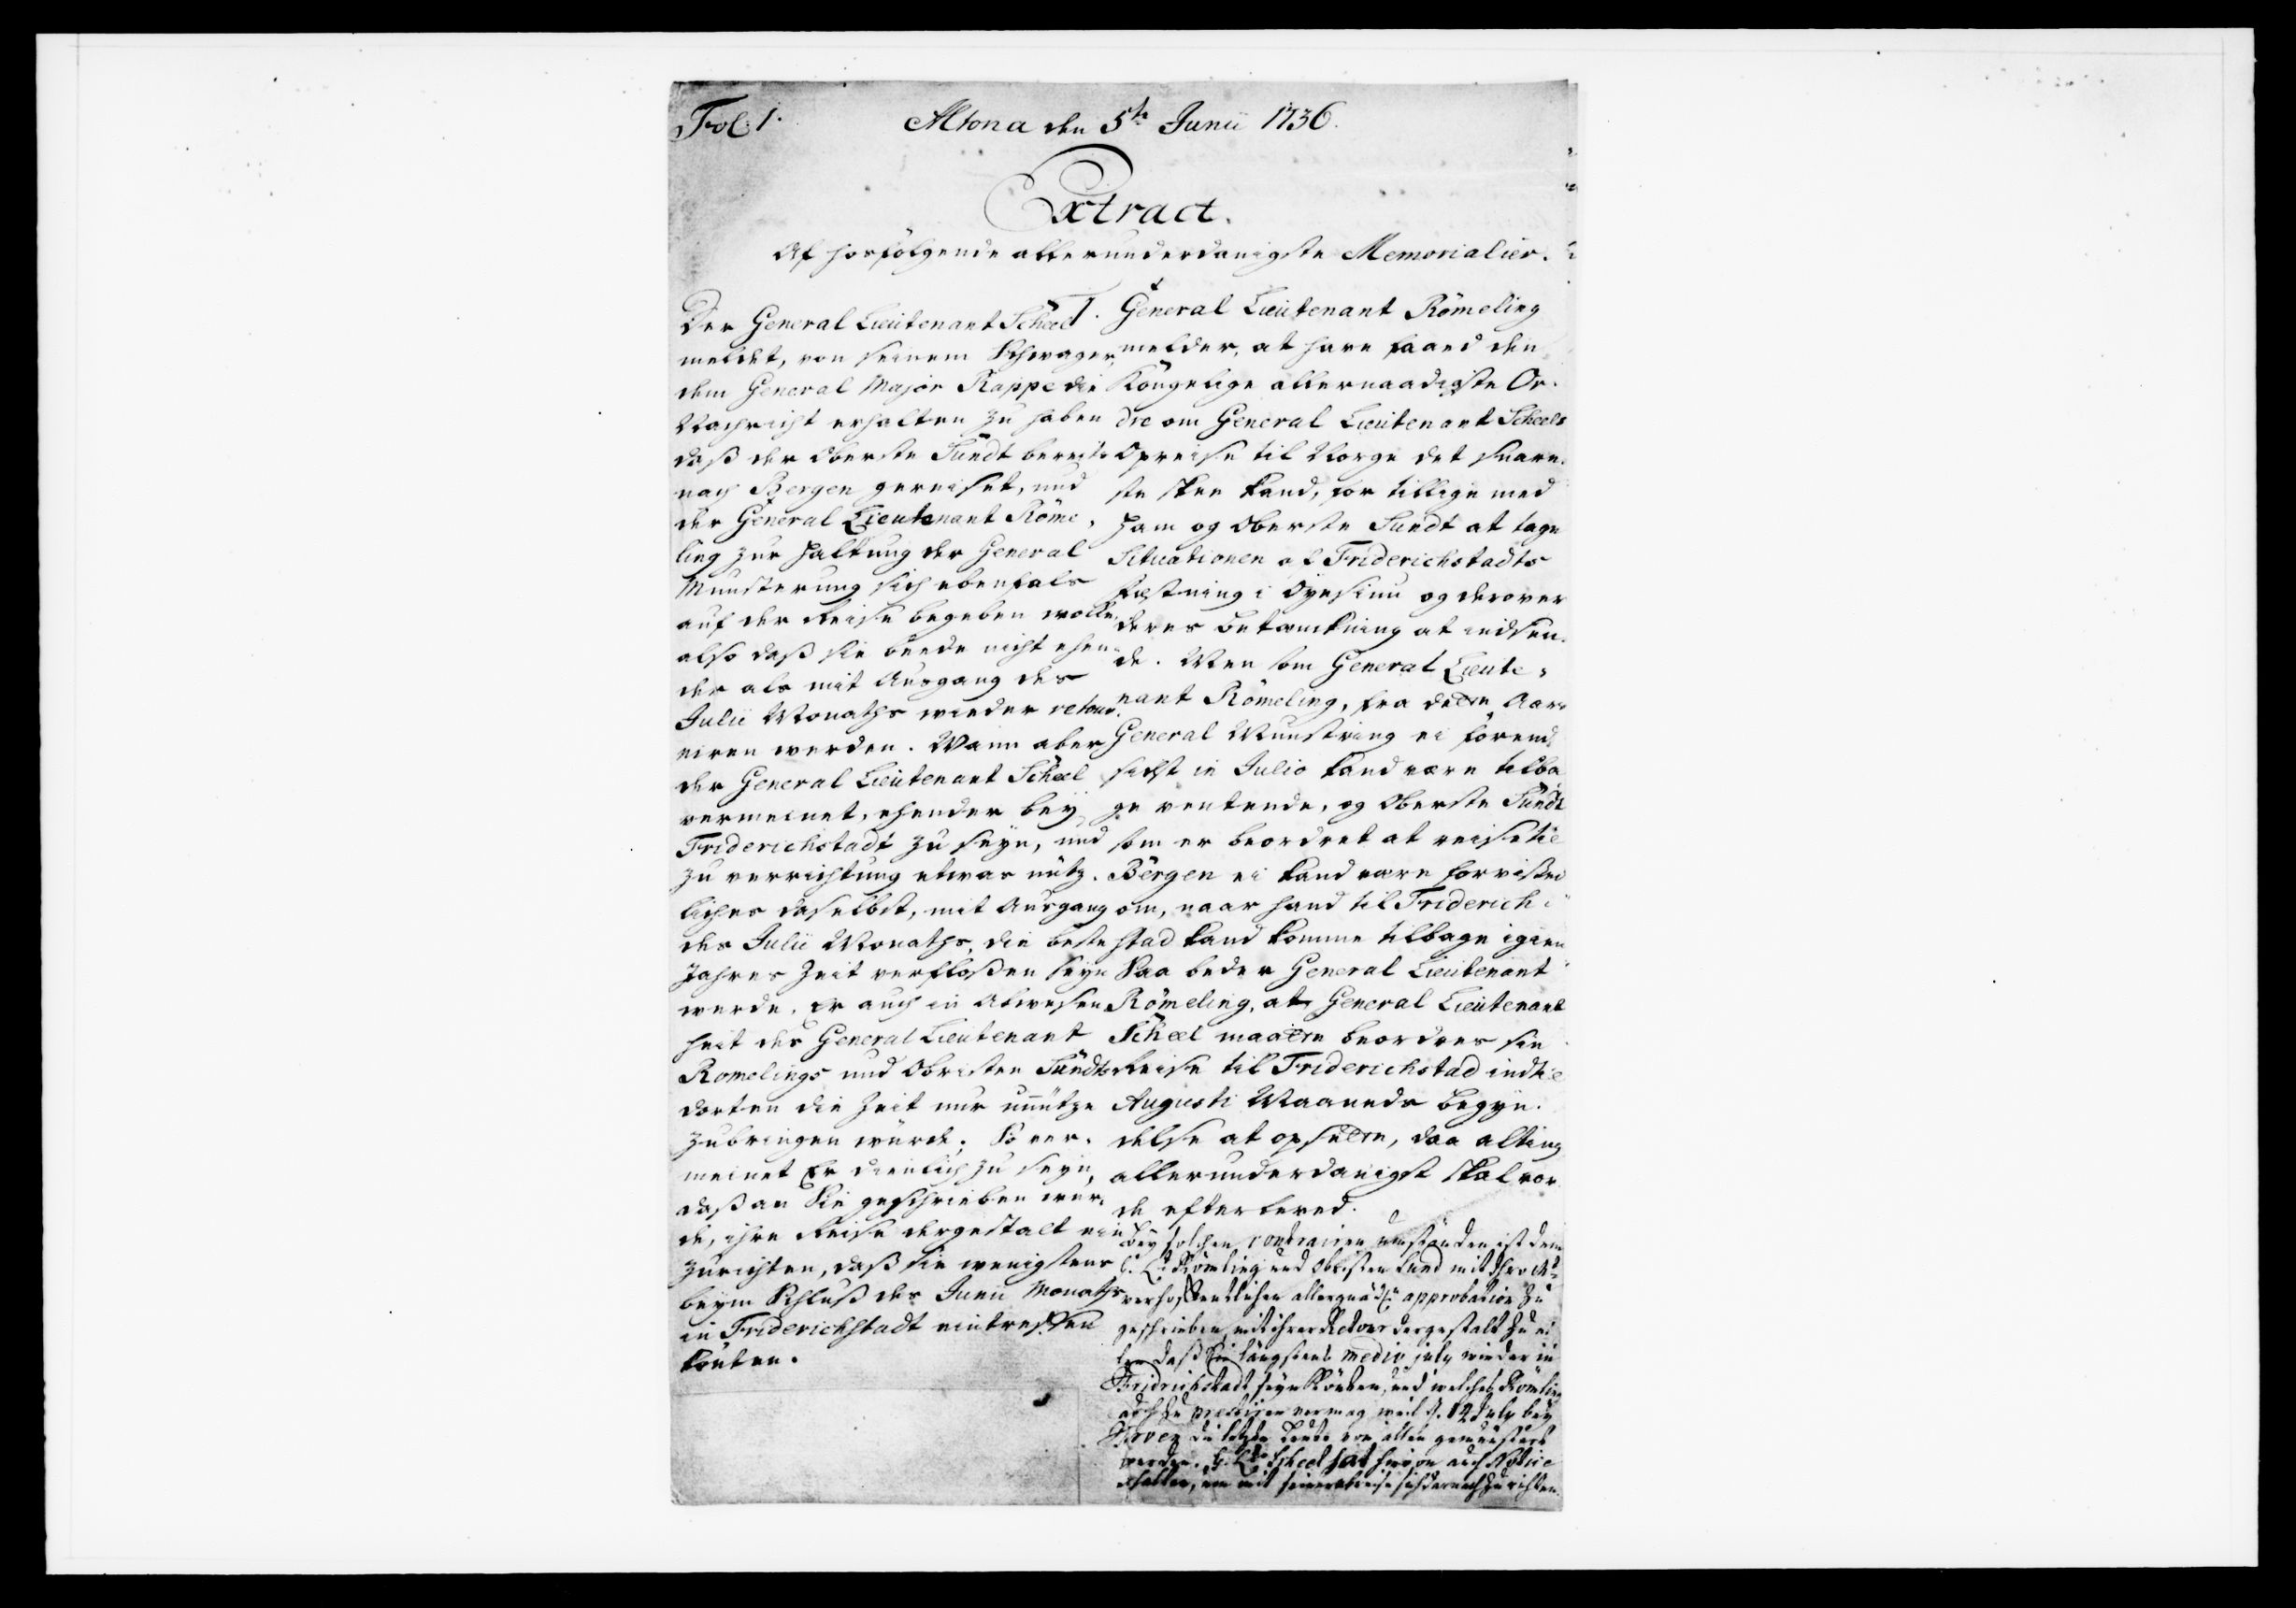 Fol: 1.
Altona den 5te Junii 1736.
Extract.
Af hosfölgende allerunderdanigste Memorialier.
Der General Lieutenant Scheel
meldet, von seinem Schwager,
dem General Major Rappe die
Nachricht erhalten zu haben
daß der Oberste Sundt bereits
nach Bergen gereiset, und
der General Lieutenant Röme,
ling zur Haltung der General
Munsterung sich ebenfals
auf der Reise begeben wolle,
also daß sie beede nicht ehen,
der als mit Ausgang des
Julii Monaths wieder retour,
niren werden. Wann aber
der General Lieutenant Scheel
vermeinet, ehender bey
Friderichstadt zu seyn, und
zu verrichtung etwas nütz,
liches daselbst, mit Ausgang
des Julii Monaths, die beste
Jahres Zeit verfloßen seyn
werde, Er auch in Abwesen
heit des General Lieutenant
Romelings und Obristen Sundts
dorten die Zeit nur unnütze
zubringen würde; So ver,
meinet Er dienlich zu seyn,
daß an Sie geschrieben wer,
de, ihre Reise dergestalt ein
zurichten, daß sie wenigstens
beym Schluß des Junii Monaths
in Friderichstadt eintreffen
könten.
1. General Lieutenant Römeling
melder, at have faaed den
Kongelige allernaadigste Or,
dre om General Lieutenant Scheels
Opreise til Norge det snare,
ste skee kand, for tillige med
ham og Oberste Sundt at tage
Situationen af Friderichstadts
Fæstning i Øyesiun og derover
deres betænkning at indsen,
de. Men som General Lieute,
nant Römeling, fra dette Aars
General Munstring ei förend
sidst in Julio kand være tilba,
ge ventende, og Oberste Sundt
som er beordret at reise til
Bergen ei kand være forvißed
om, naar hand til Friderich
stad kand komme tilbage igien
Saa beder General Lieutenant
Römeling, at General Lieutenant
Scheel maatte beordres sin
Reise til Friderichstad indtil
Augusti Maaneds begyn,
delse at opsette, daa alting
allerunderdanigst skal vor
de efterleved.
Bey solchen contrairen umständen ist dem
G. Lt. Römling und Obristen Sund mit Ihro Mt
verhoffentlichen allergnädgn approbation zu
geschrieben, mit ihrer Retour dergestalt zu ei
len daß Sie längstens medio july wieder in
Fridrichstadt seyn könten, und welches Römling
auch zu prestiren vermag weil d. 12 July bey
die letzten Leute von allen gemunstert
werden. G. Lt. Scheel hat hievon auch Notice
erhalten, um mit seiner abreise sich darnach zu richten.